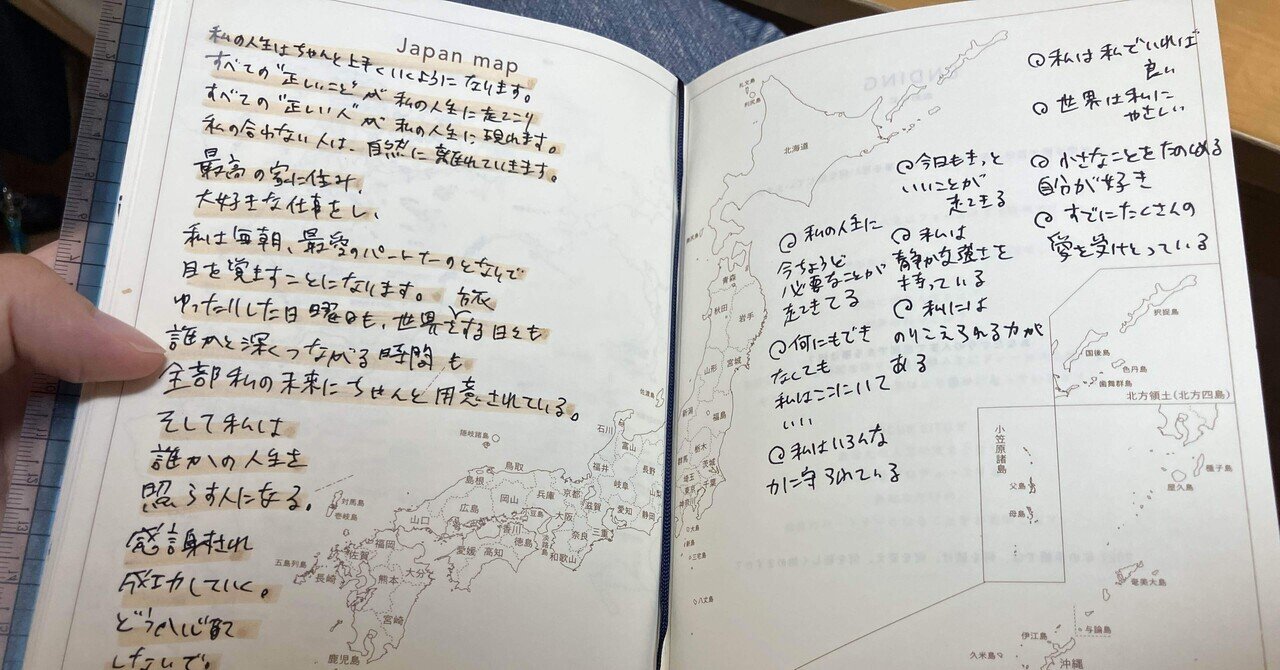 Japan map
私の人生はちゃんと上手くいくようになります。
すべての"正しいこと"が私の人生に起こり
すべての"正しい人"が私の人生に現れます。
私の合わない人は、自然に離れていきます。
最高の家に住み、
大好きな仕事をし、
私は毎朝、最愛のパートナーのとなりで
目を覚ますことになります。
ゆったりした日曜日も、世界を旅する日々も
誰かと深くつながる時間も
全部私の未来にちゃんと用意されている。
そして私は
誰かの人生を
照らす人になる。
感謝され
成功していく。
どうか心配
しないで。
隠岐諸島
佐渡島
石川
富山
長野
福井
岐阜
山梨
鳥取
島根
岡山
兵庫
京都
滋賀
愛知
静岡
広島
山口
香川
淡路島
大阪
奈良
三重
愛媛
高知
徳島
和歌山
対馬島
壱岐島
福岡
佐賀
大分
五島列島
長崎
熊本
宮崎
鹿児島
私の人生に
今ちょうど
必要なことが
起きてる
何にもでき
なくても
私はここにいて
いい
私はいろんな
力に守られている
今日もきっと
いいことが
起きる
私は
静かな強さを
持っている
私には
のりこえられる力が
ある
私は私でいれば
良い
世界は私に
やさしい
小さなことをたのしめる
自分が好き
すでにたくさんの
愛を受けとっている
礼文島
利尻島
北海道
奥尻島
青森
秋田
岩手
山形
宮城
新潟
福島
群馬
栃木
茨城
埼玉
東京
千葉
神奈川
大島
新島
三宅島
八丈島
択捉島
国後島
色丹島
歯舞群島
北方領土(北方四島)
小笠原諸島
父島
母島
種子島
屋久島
奄美大島
与論島
伊江島
久米島
沖縄